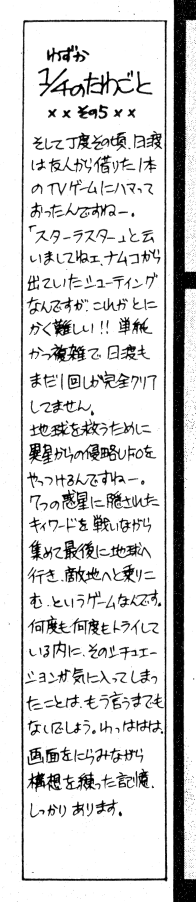 わずか
1/4のたわごと
×× その5 ××
そして丁度その頃、日渡
は友人から借りた1本
のTVゲームにハマって
おったんですねー。
「スターラスター」と云
いましてねェ、ナムコから
出ていたシューティング
なんですが、これがとに
かく難しい!! 単純
かつ複雑で、日渡も
まだ1回しか完全クリア
してません。
地球を救うために
異星からの侵略UFOを
やっつけるんですねー。
7つの惑星に隠された
キィワードを戦いながら
集めて最後に地球へ
行き、敵地へと乗りこ
む、というゲームなんです。
何度も何度もトライして
いる内に、そのシチュエー
ションが気に入ってしまっ
たことは、もう言うまでも
ないでしょう。わっははは。
画面をにらみながら
構想を練った記憶、
しっかりあります。